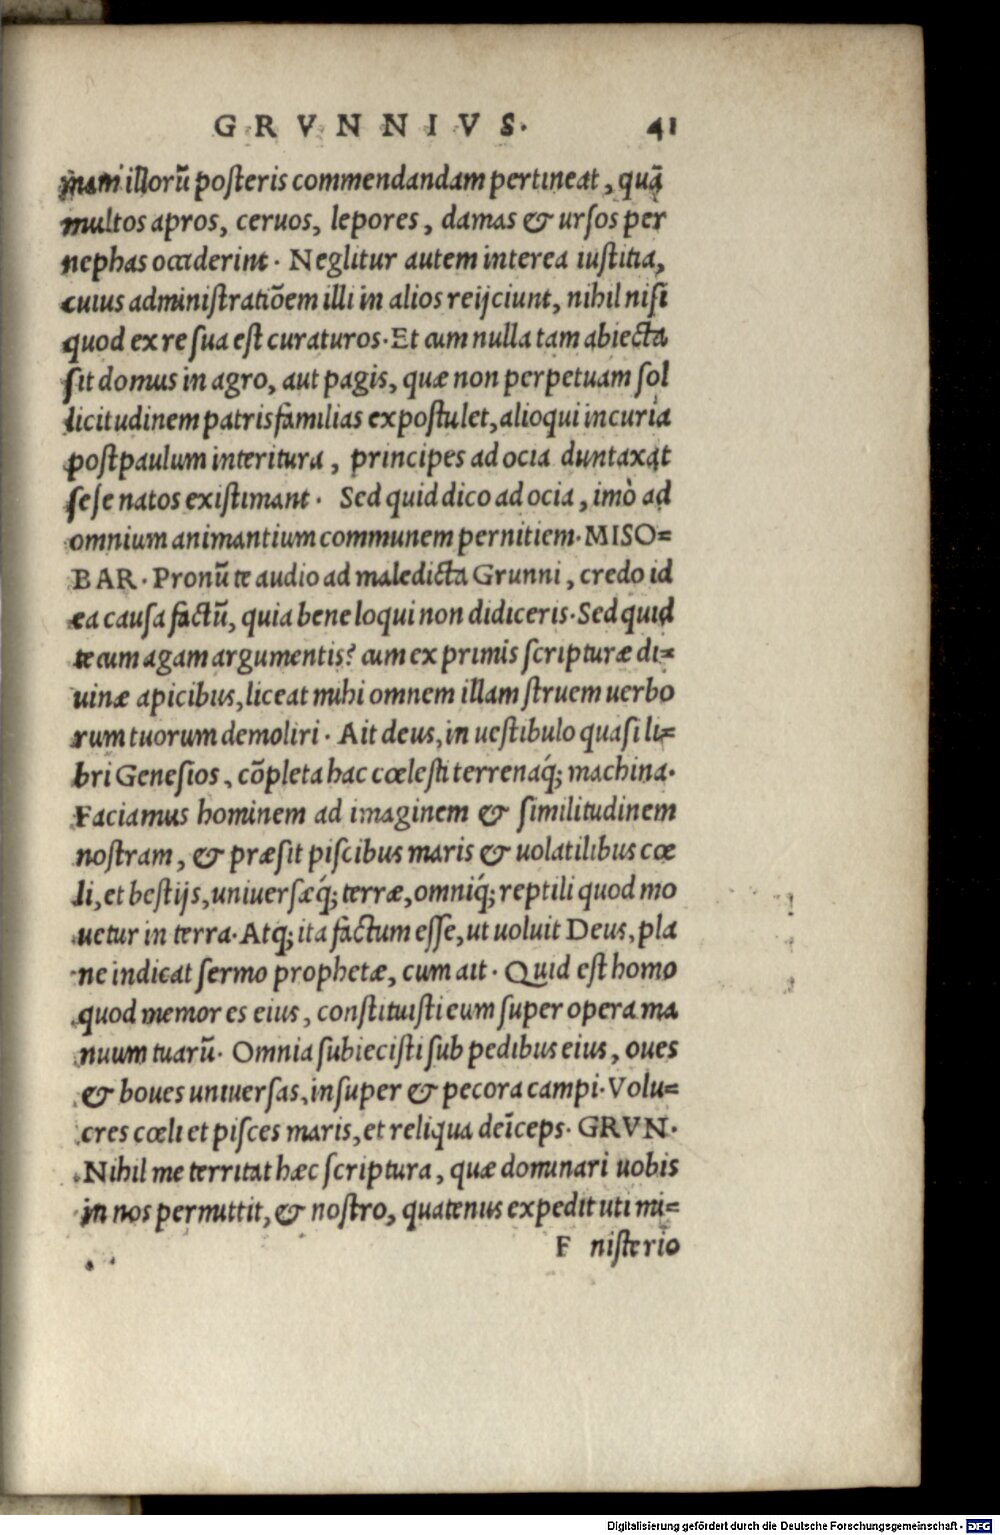 GRVNNIVS. 41
mam illorũ posteris commendandam pertineat, quã
multos apros, ceruos, lepores, damas & ursos per
nephas occiderint. Neglitur autem interea iustitia,
cuius administratiõem illi in alios reijciunt, nihil nisi
quod ex re sua est curaturos. Et cum nulla tam abiecta
sit domus in agro, aut pagis, quæ non perpetuam sol
licitudinem patrisfamilias expostulet, alioqui incuria
postpaulum interitura, principes ad ocia duntaxat
sese natos existimant. Sed quid dico ad ocia, imò ad
omnium animantium communem pernitiem. MISO=
BAR. Pronũ te audio ad maledicta Grunni, credo id
ea causa factũ, quia bene loqui non didiceris. Sed quid
tecum agam argumentis? cum ex primis scripturæ di=
uinæ apicibus, liceat mihi omnem illam struem uerbo
rum tuorum demoliri. Ait deus, in uestibulo quasi li=
bri Genesios, cõpleta hac cœlesti terrenaq́; machina.
Faciamus hominem ad imaginem & similitudinem
nostram, & præsit piscibus maris & uolatilibus cœ
li, et bestijs, uniuersæq́; terræ, omniq́; reptili quod mo
uetur in terra. Atq; ita factum esse, ut uoluit Deus, pla
ne indicat sermo prophetæ, cum ait. Quid est homo
quod memor es eius, constituisti eum super opera ma
nuum tuarũ. Omnia subiecisti sub pedibus eius, oues
& boues uniuersas, insuper & pecora campi. Volu=
cres cœli et pisces maris, et reliqua deĩceps. GRVN.
Nihil me territat hæc scriptura, quæ dominari uobis
in nos permittit, & nostro, quatenus expedit uti mi=
F nisterio
Digitalisierung gefördert durch die Deutsche Forschungsgemeinschaft - DFG